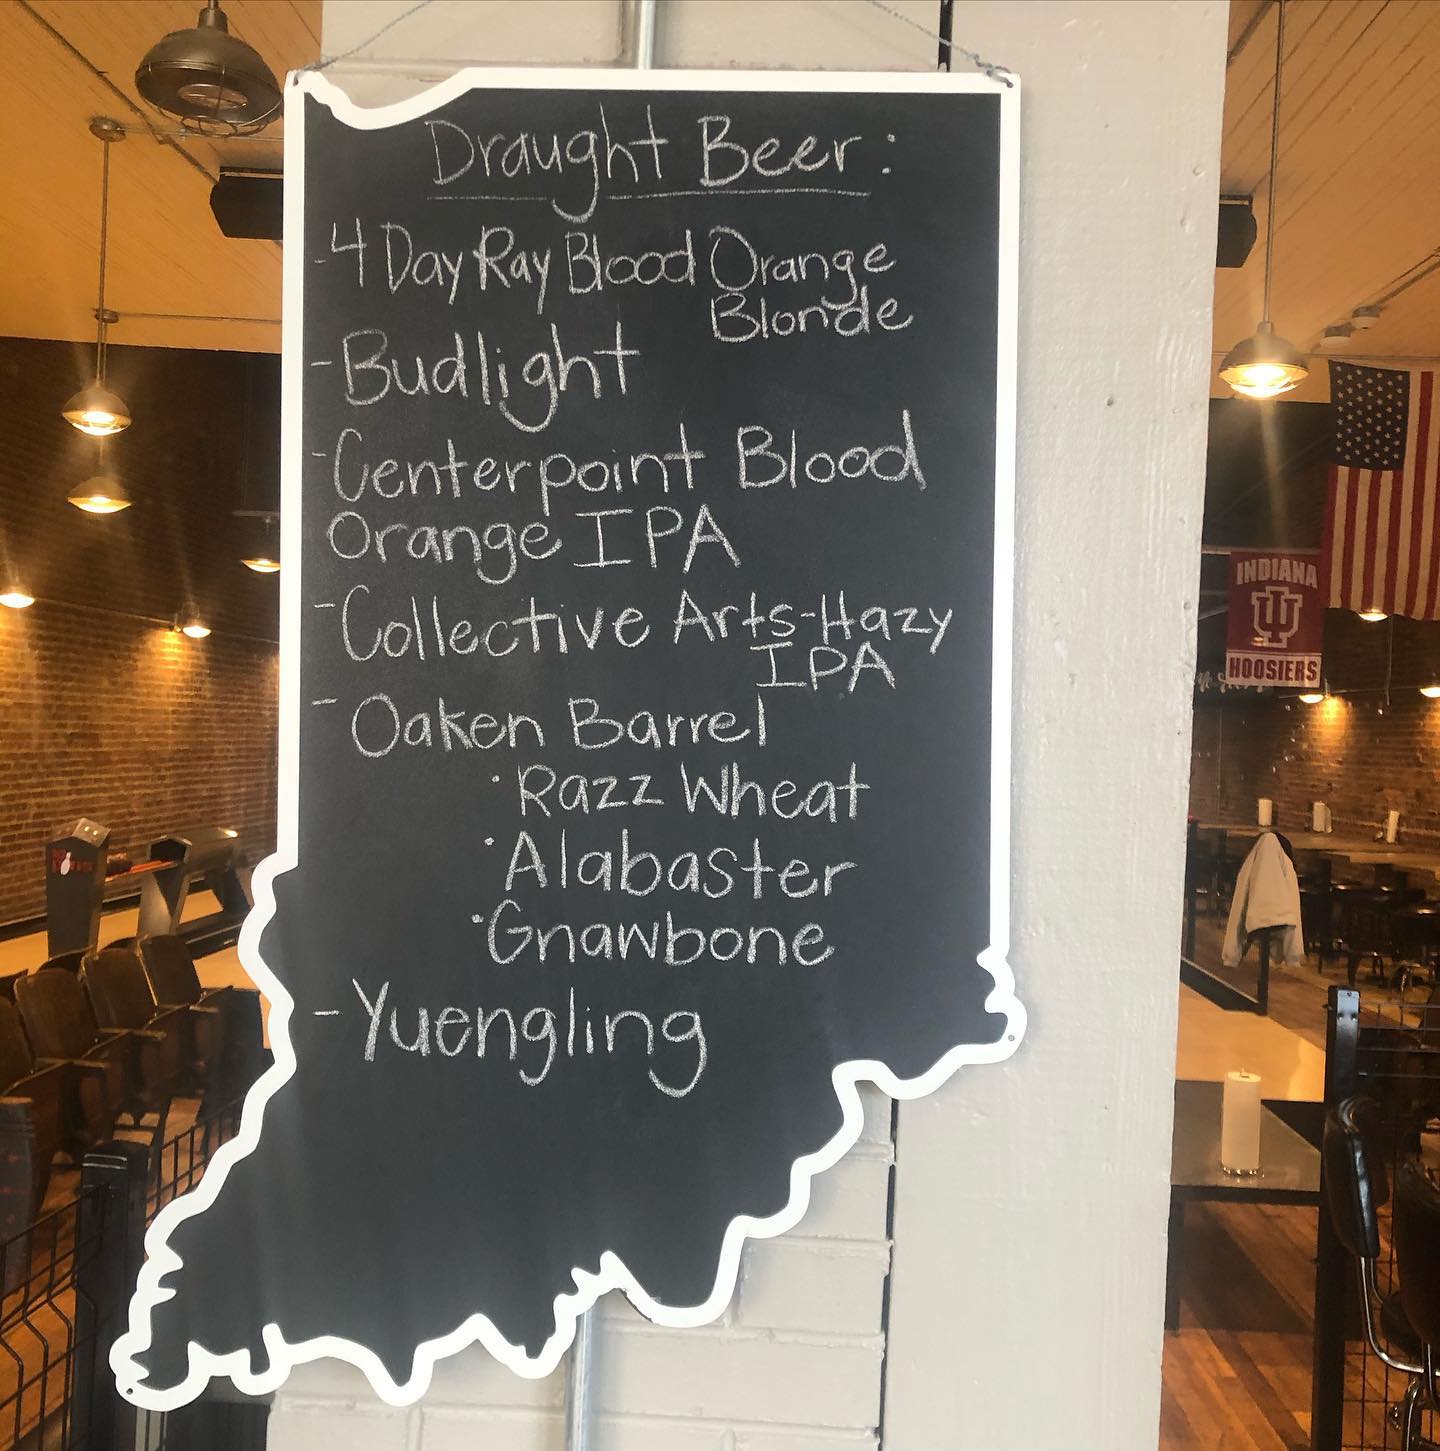 Draught Beer:
- 4 Day Ray Blood Orange
Blonde
- Budlight
- Centerpoint Blood
Orange IPA
- Collective Arts - Hazy
IPA
- Oaken Barrel
· Razz Wheat
· Alabaster
· Gnawbone
- Yuengling
INDIANA
IU
HOOSIERS